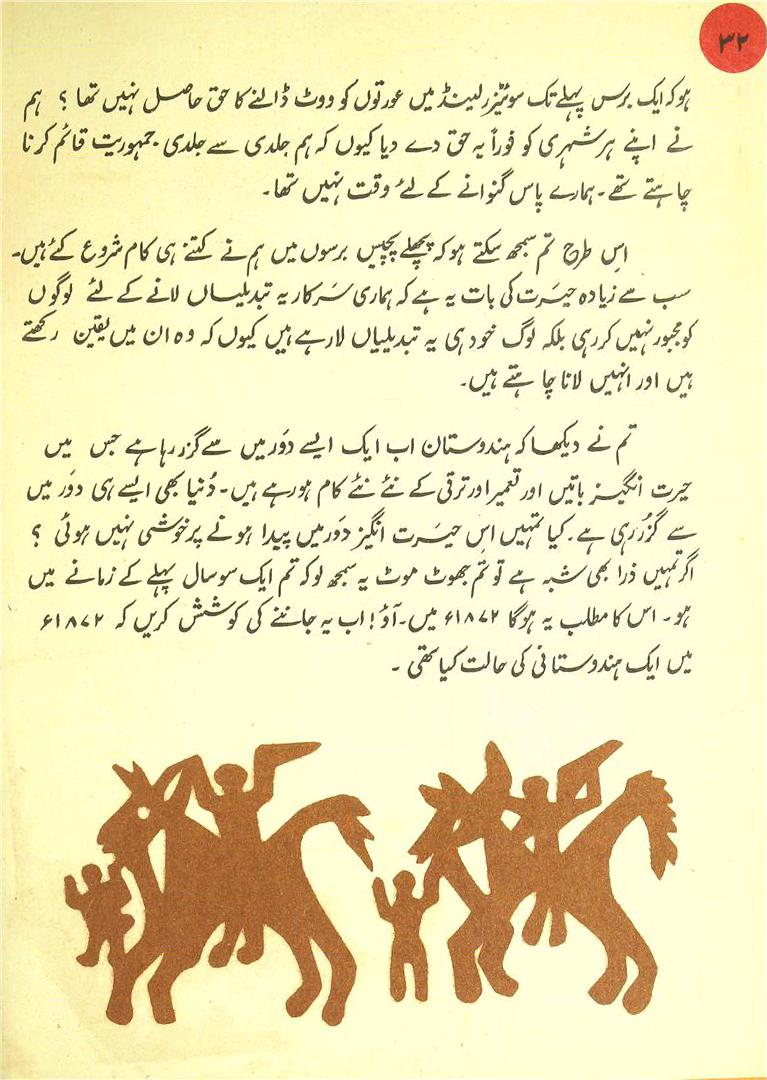 ۳۲
ہو کہ ایک برس پہلے تک سوئٹزرلینڈ میں عورتوں کو ووٹ ڈالنے کا حق حاصل نہیں تھا؟ ہم
نے اپنے ہر شہری کو فوراً یہ حق دے دیا کیوں کہ ہم جلدی سے جلدی جمہوریت قائم کرنا
چاہتے تھے۔ ہمارے پاس گنوانے کے لئے وقت نہیں تھا۔
اِس طرح تم سمجھ سکتے ہو کہ پچھلے پچیس برسوں میں ہم نے کتنے ہی کام شروع کئے ہیں۔
سب سے زیادہ حیرَت کی بات یہ ہے کہ ہماری سَرکار یہ تبدیلیاں لانے کے لئے لوگوں
کو مجبور نہیں کر رہی بلکہ لوگ خود ہی یہ تبدیلیاں لا رہے ہیں کیوں کہ وہ ان میں یقین رکھتے
ہیں اور انہیں لانا چاہتے ہیں۔
تم نے دیکھا کہ ہندوستان اب ایک ایسے دَور میں سے گزر رہا ہے جس میں
حیرت انگیز باتیں اور تعمیر اور ترقی کے نئے نئے کام ہو رہے ہیں۔ دُنیا بھی ایسے ہی دَور میں
سے گُزر رہی ہے۔ کیا تمہیں اِس حیَرت انگیز دَور میں پیدا ہونے پر خوشی نہیں ہوئی؟
اگر تمہیں ذرا بھی شبہ ہے تو تم جھوٹ موٹ یہ سمجھ لو کہ تم ایک سو سال پہلے کے زمانے میں
ہو۔ اس کا مطلب یہ ہو گا ۱۸۷۲ء میں۔ آؤ! اب یہ جاننے کی کوشش کریں کہ ۱۸۷۲ء
میں ایک ہندوستانی کی حالت کیا تھی۔